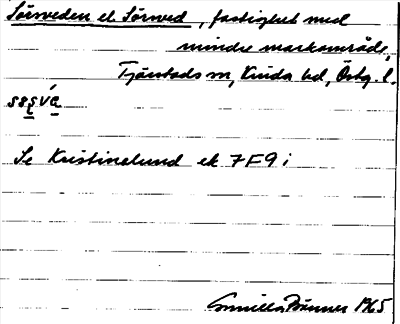 Sörveden el Sörved, fastighet med
mindre markområde,
Tjärstads sn, Kinda hd, Östg. l.
Se Kristinelund ek 7F9i
Gunilla Brunner 1965